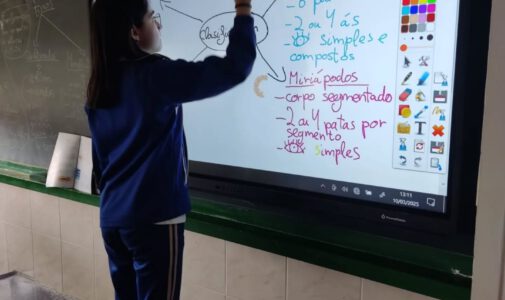 Clasifica
- 2 ou 4 ás
- simples e
compostos
Miriápodos
- corpo segmentado
- 2 ou 4 patas por
segmento
- simples
13:11
10/03/2025